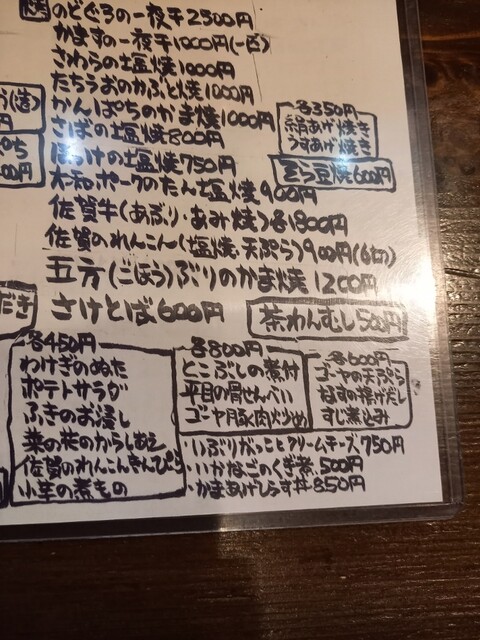 焼 のどぐろの一夜干2500円
かますの一夜干1000円(一匹)
さわらの塩焼1000円
たちうおのかぶと焼1000円
かんぱちのかま焼1000円
さばの塩焼800円
ほっけの塩焼750円
大和ポークのたん塩焼900円
佐賀牛(あぶり・あみ焼)各1800円
佐賀のれんこん(塩焼・天ぷら)900円(6切)
五方(ごほう)ぶりのかま焼1200円
さけとば600円
各350円
絹あげ焼き
うすあげ焼き
そら豆焼600円
茶わんむし500円
各450円
わけぎのぬた
ポテトサラダ
ふきのお浸し
菜の花のからしあえ
佐賀のれんこんきんぴら
小芋の煮もの
各800円
とこぶしの煮付
平目の骨せんべい
ゴーヤ豚肉炒め
各600円
ゴーヤの天ぷら
なすの揚げだし
すじ煮込み
・いぶりがっことクリームチーズ750円
・いかなごのくぎ煮500円
・かまあげしらす丼850円